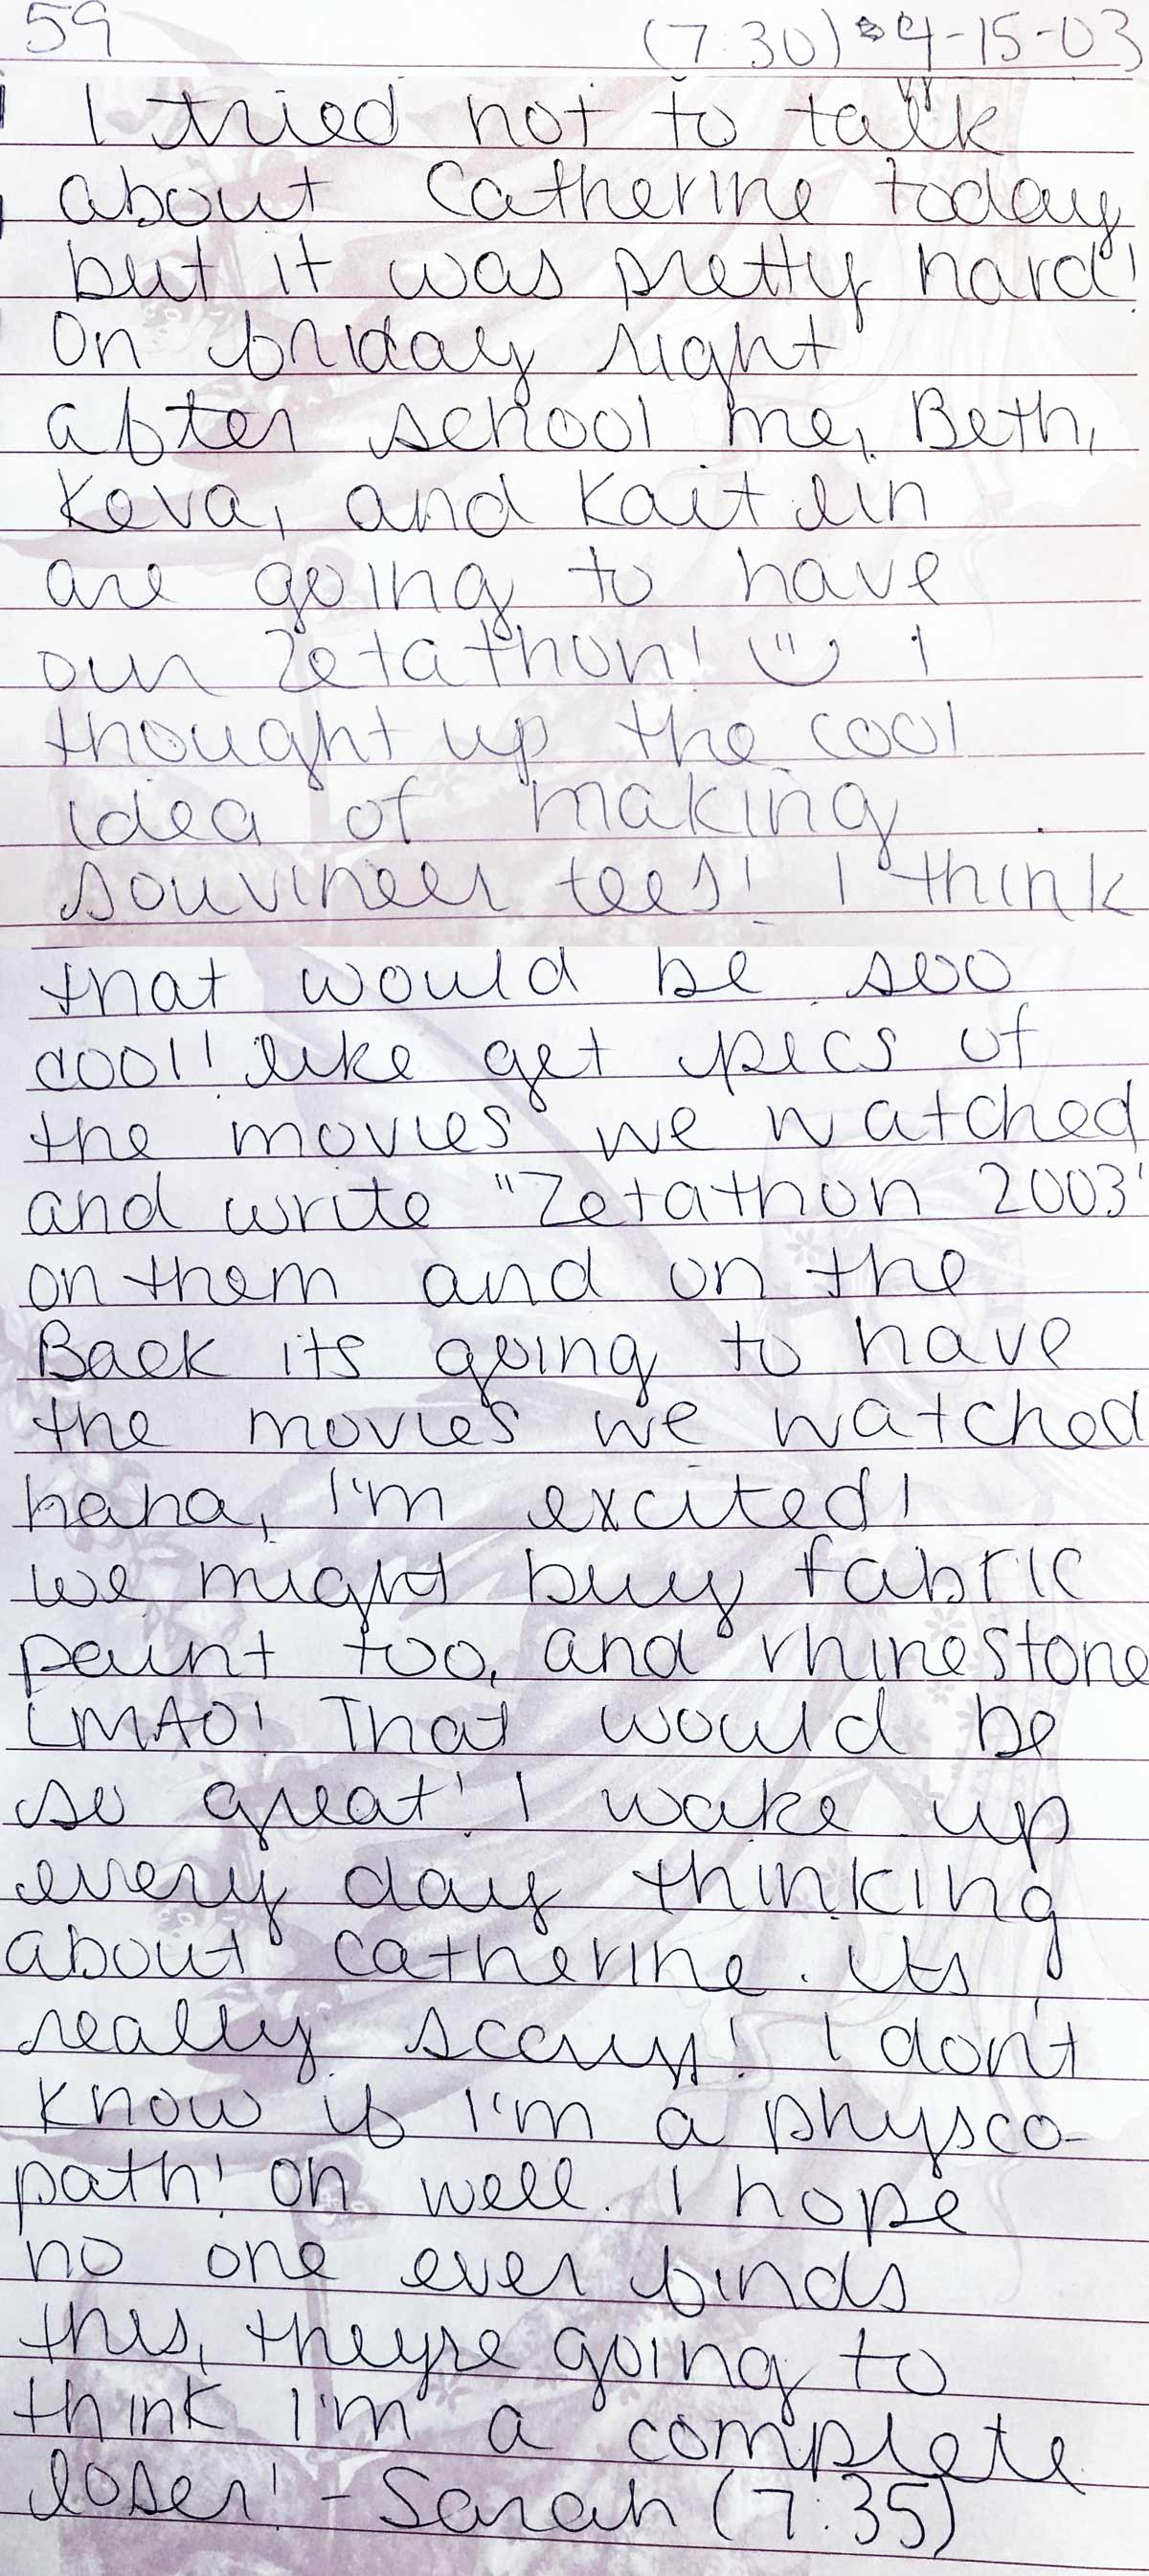 59 (7:30) 4-15-03
I tried not to talk
about Catherine today
but it was pretty hard!
On friday right
after school me, Beth,
Keva, and Kaitlin
are going to have
our Zetathon! I
thought up the cool
idea of making
souvineer tees! I think
that would be soo
cool! like get pics of
the movies we watched
and write "Zetathon 2003"
on them and on the
Back its going to have
the movies we watched
haha, I'm excited!
we might buy fabric
paint too, and rhinestone
LMAO! That would be
so great! I wake up
every day thinking
about catherine. its
really scary! I don't
know if I'm a physco-
path! oh well. I hope
no one ever finds
this, theyre going to
think I'm a complete
loser! - Sarah (7:35)